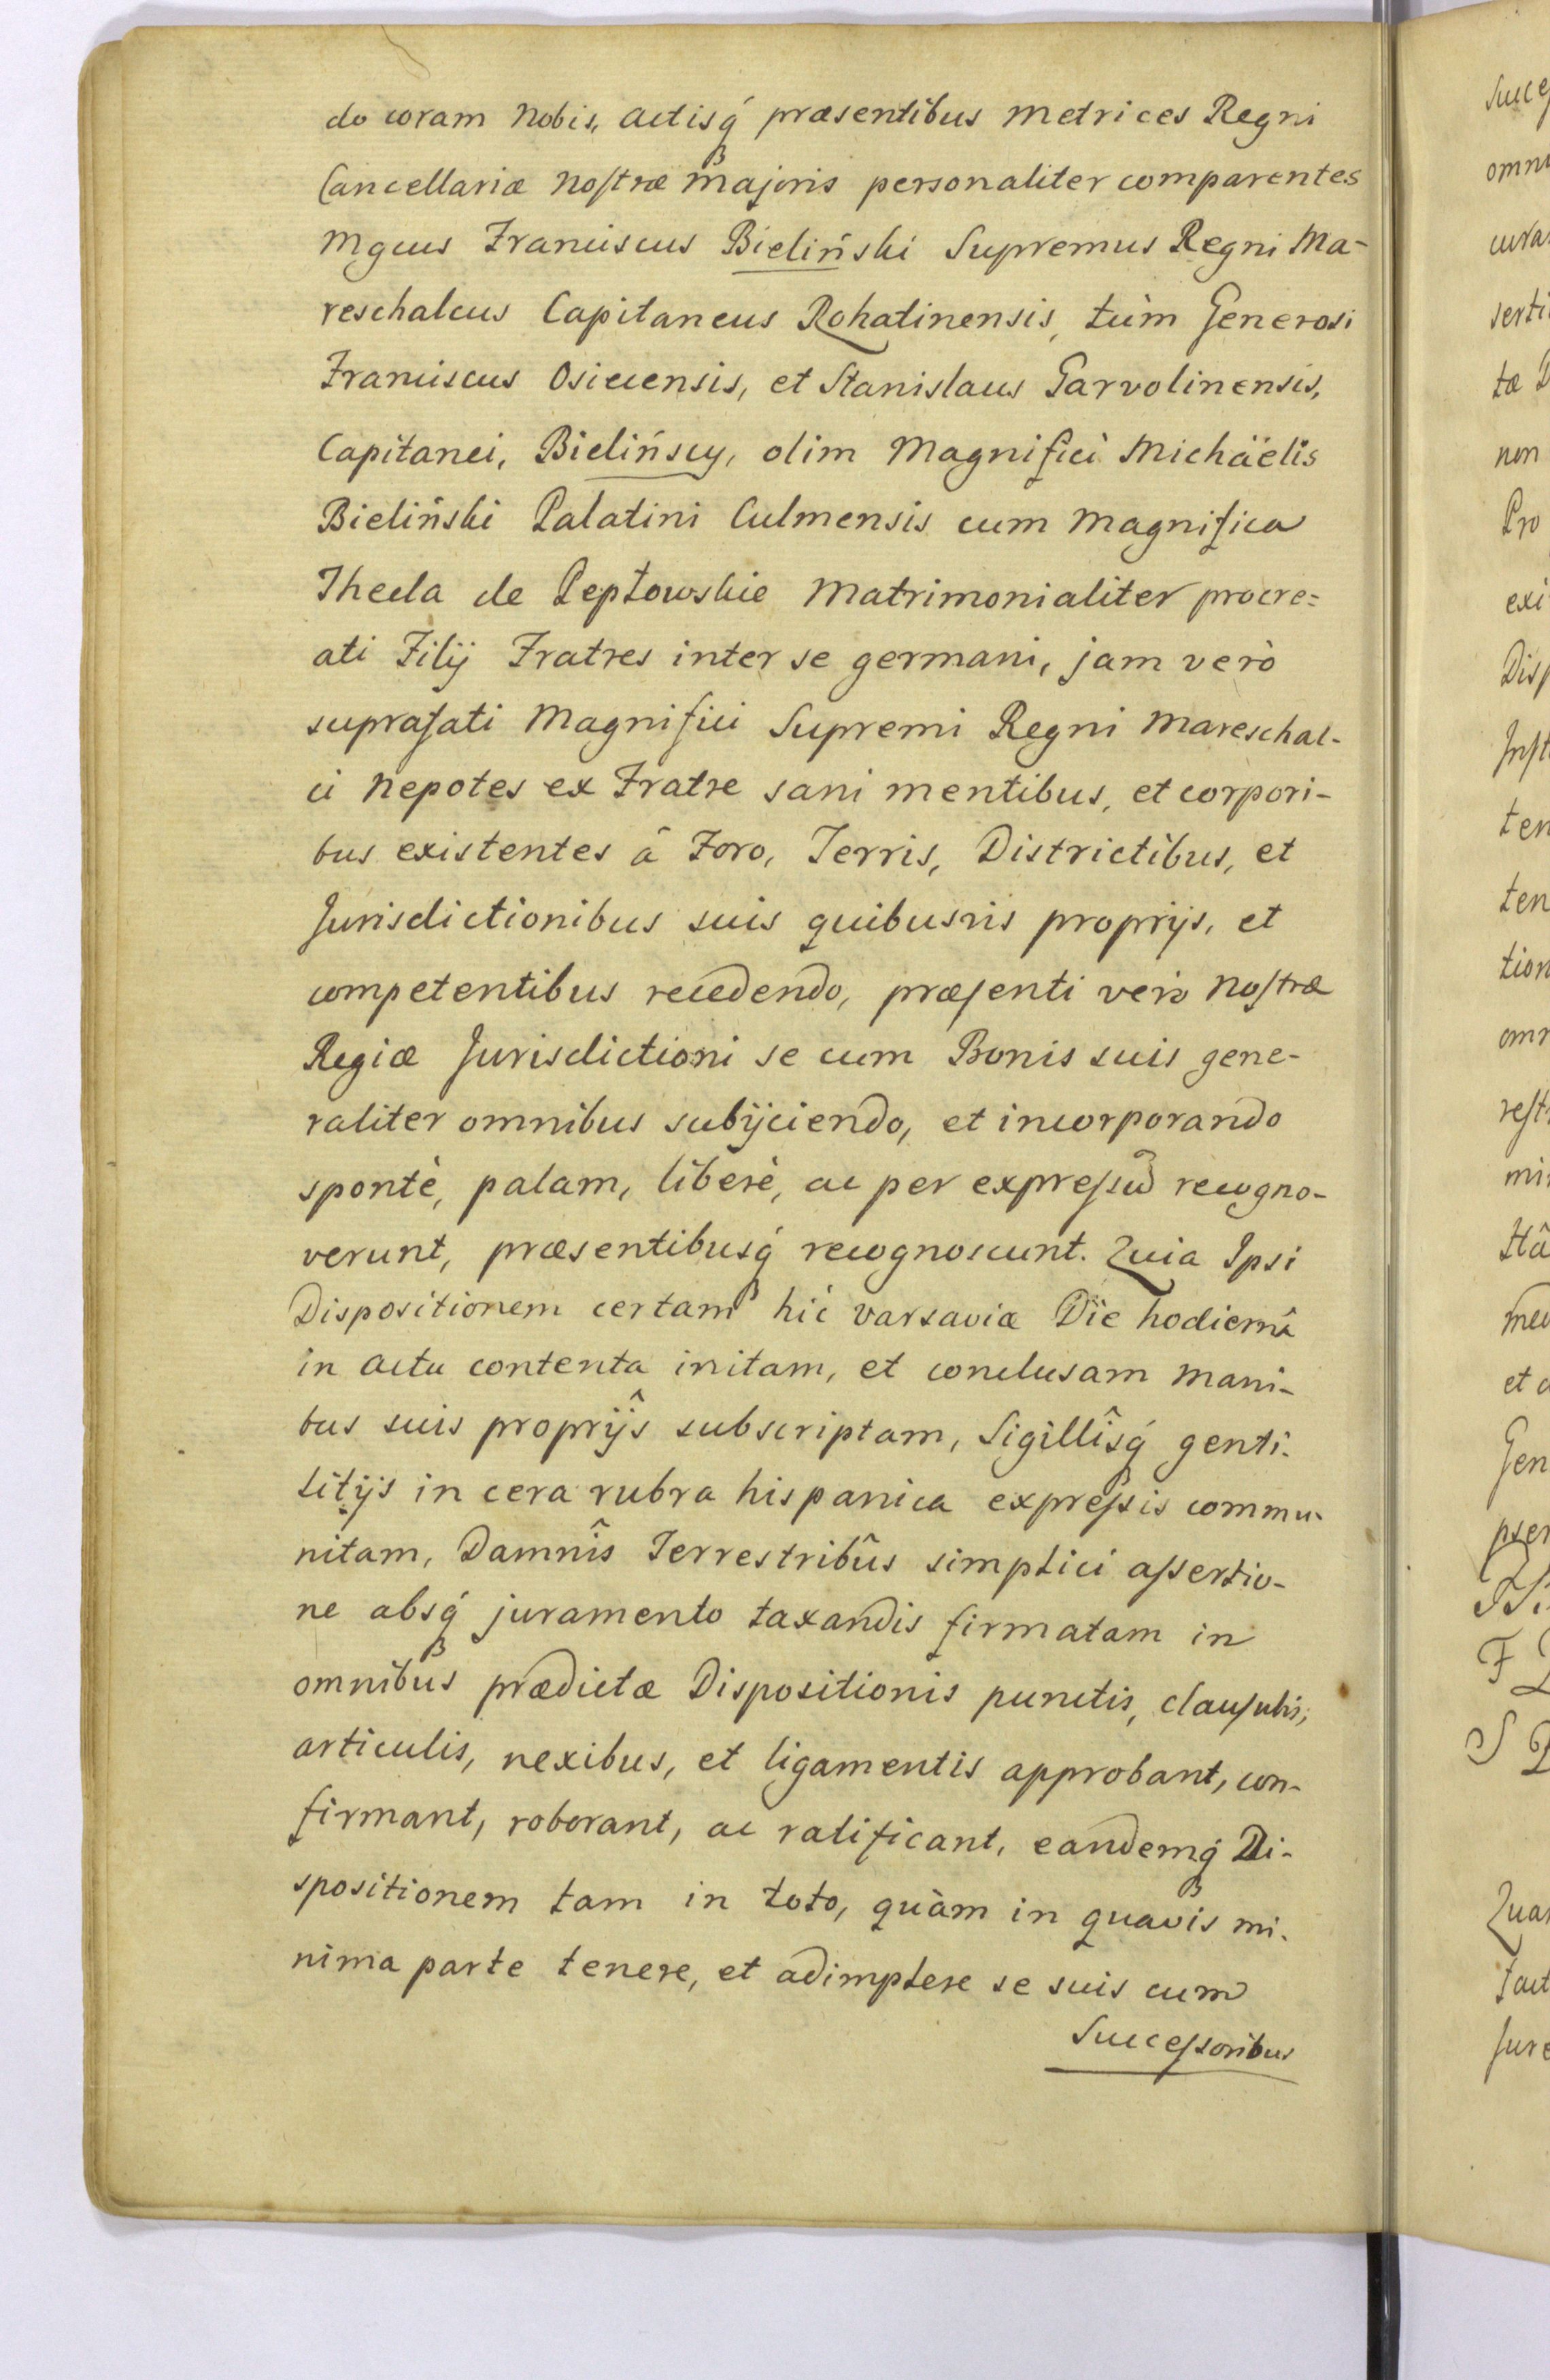 do coram Nobis, actisq́ præsentibus Metrices Regni
Cancellariæ Nostræ Majoris personaliter comparentes
Mgcus Franciscus Bieliński Supremus Regni Ma-
reschalcus Capitaneus Rohatinensis, tùm Generosi
Franciscus Osiecensis, et Stanislaus Garvolinensis,
Capitanei, Bielińscy, olim Magnifici Michäelis
Bieliński Palatini Culmensis cum Magnifica
Thecla de Pepłowskie Matrimonialiter procre=
ati Filij Fratres inter se germani, jam verò
suprafati Magnifici Supremi Regni Mareschal-
ci Nepotes ex Fratre sani mentibus, et corpori-
bus existentes â Foro, Terris, Districtibus, et
Jurisdictionibus suis quibusvis proprijs, et
competentibus recedendo, præsenti verò Nostræ
Regiæ Jurisdictioni se cum Bonis suis gene-
raliter omnibus subijciendo, et incorporando
spontè, palam, liberè, ac per expressũ recogno-
verunt, præsentibusq́ recognoscunt. Quia Ipsi
Dispositionem certam hic Varsaviæ Die hodiernâ
in actu contenta initam, et conclusam Mani-
bus suis proprijs subscriptam, Sigillîsq́ genti-
litijs in cera rubra hispanica expressis commu-
nitam, Damnîs Terrestribûs simplici assertio-
ne absq́ juramento taxandis firmatam in
omnibus prædictæ Dispositionis punctis, clausulis,
articulis, nexibus, et ligamentis approbant, con-
firmant, roborant, ac ratificant, eandemq́ Di-
spositionem tam in toto, quàm in quavis mi-
nima parte tenere, et adimplere se suis cum
Successoribus